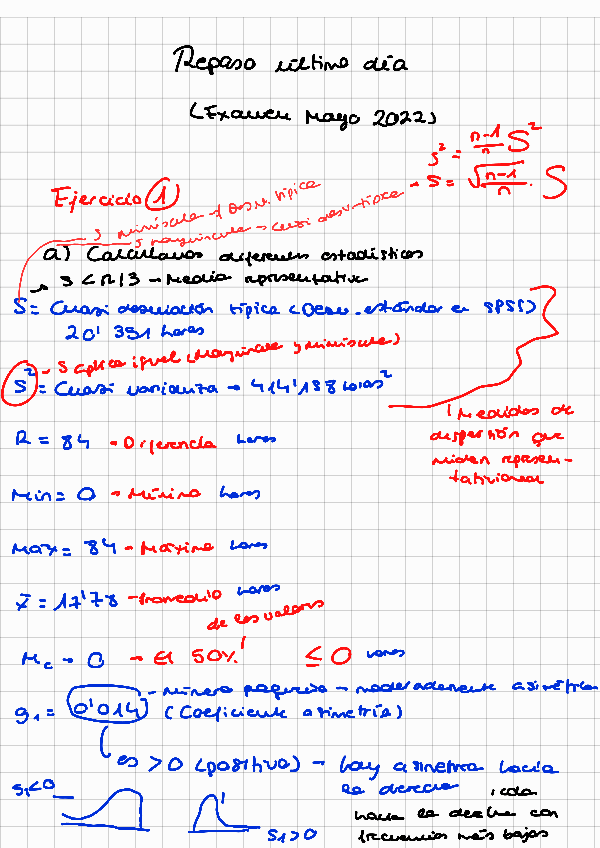 Repaso último día
(Examen Mayo 2022)
s² = n-1/n S²
Ejercicio 1
s minúscula → Desv. típica
s mayúscula → cuasi desv. típica
s = √n-1/n · S
a) Calculamos diferentes estadísticos
S < R/3 - Media representativa
S = Cuasi desviación típica (Desv. estándar en SPSS)
20'351 horas
- Se aplica igual (Mayúscula y minúscula)
S² = Cuasi varianza → 414'188 horas²
Medidas de
dispersión que
miden represen-
tatividad
R = 84 - Diferencia horas
Min = 0 - Mínimo horas
Max = 84 - Máximo horas
x̄ = 17'78 - Promedio horas
de los valores
Me → 0 → El 50% ≤ 0 horas
- Número pequeño - moderadamente asimétrica
g₁ = 0'014 (Coeficiente asimetría)
es > 0 (positivo) - hay asimetría hacia
la derecha, cola
hacia la derecha con
frecuencias más bajas
g₁<0
g₁>0